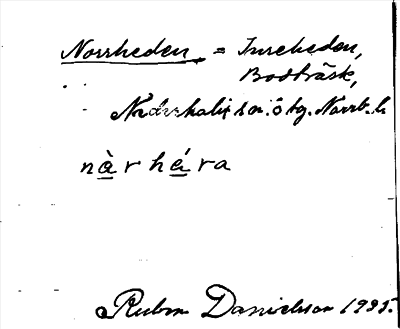 Norrheden = Inreheden,
Bodträsk,
Nederkalix sn. ö tg. Norrb. l.
nàrhéra
Ruben Danielsson 1935.